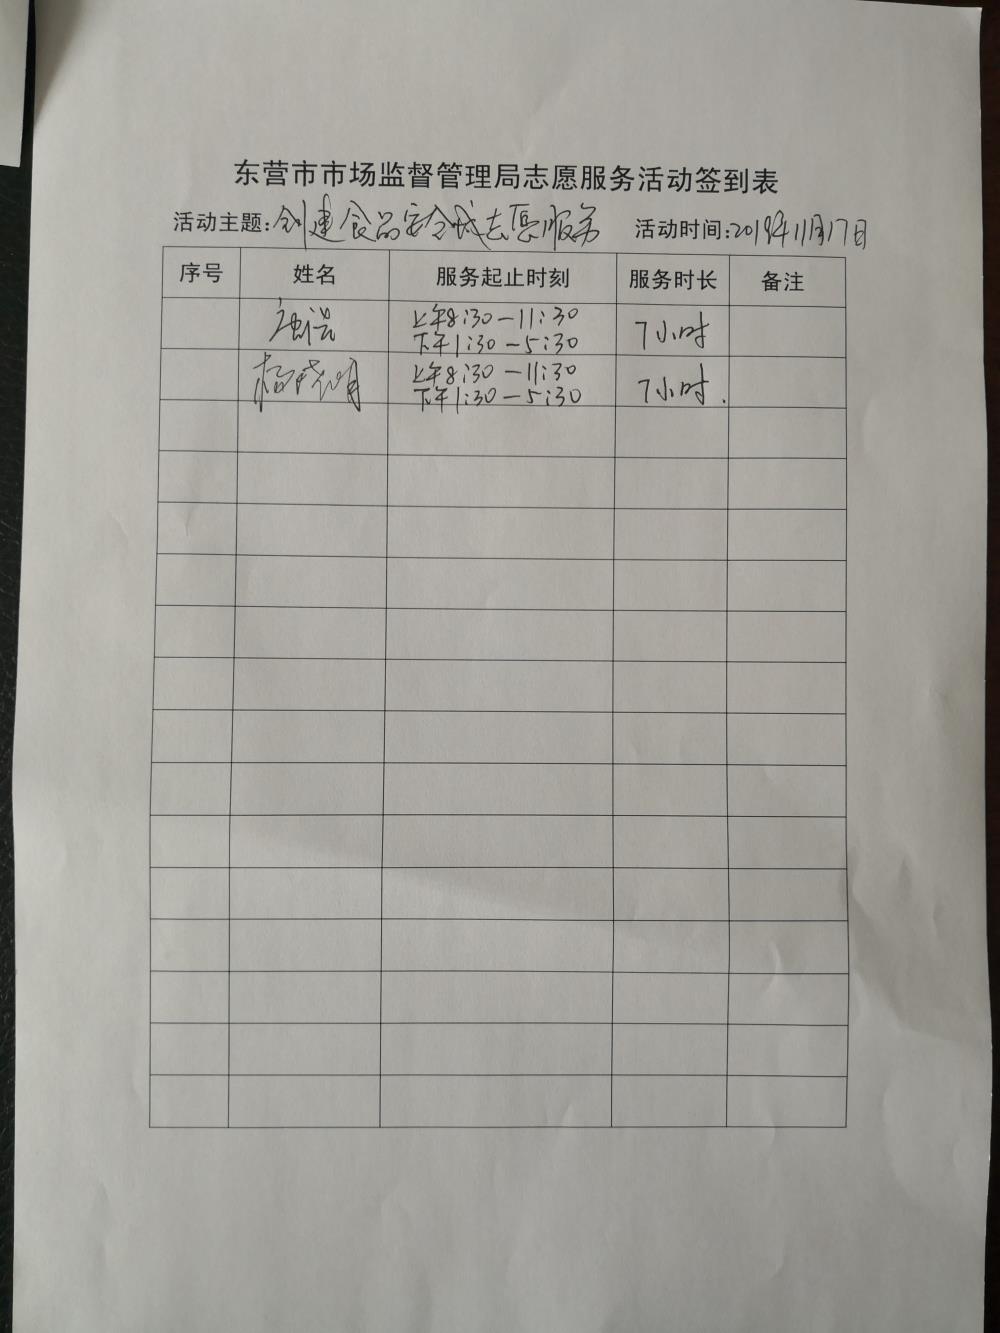 东营市市场监督管理局志愿服务活动签到表
活动主题:创建食品安全城志愿服务 活动时间:2019年11月17日
序号 姓名 服务起止时刻 服务时长 备注
上午8:30—11:30
下午1:30—5:30
7小时
杨晓明
上午8:30—11:30
下午1:30—5:30
7小时.